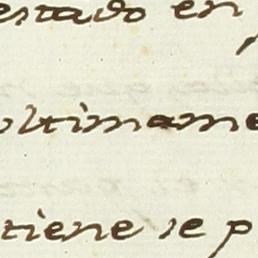 estado en
oltimame
tiene se p